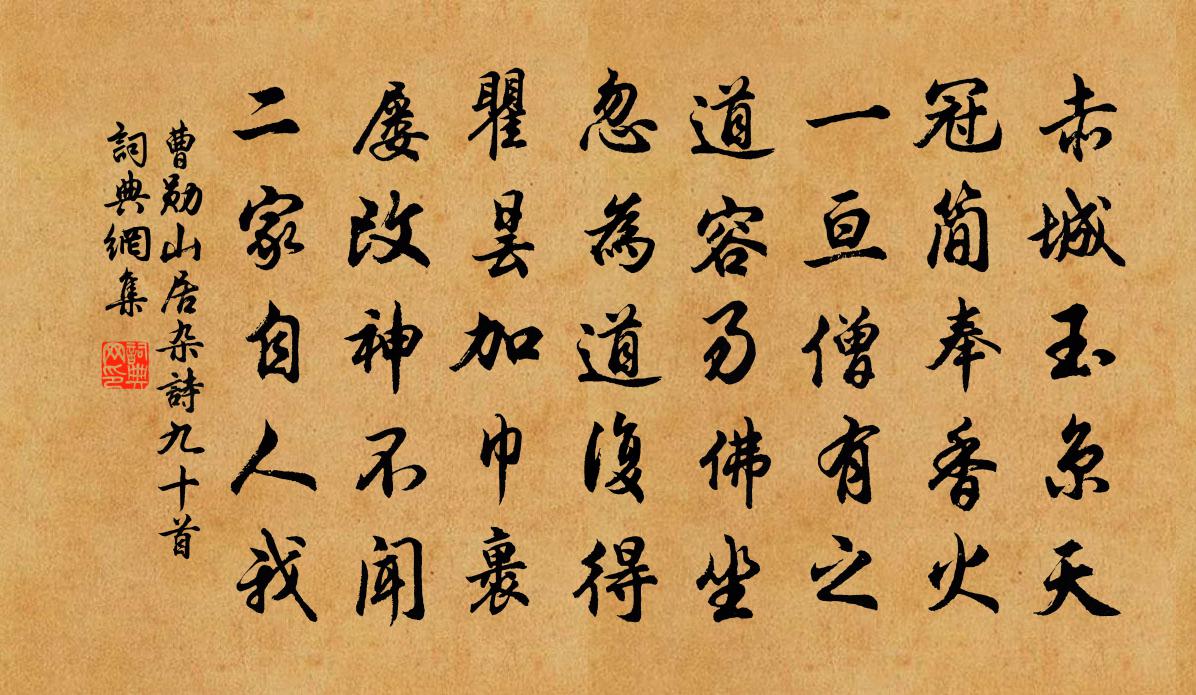 赤城玉京天
冠簡奉香火
一亘僧有之
道容易佛坐
忽為道復得
瞿曇加巾裹
屡改神不聞
二家自人我
曹勋山居杂詩九十首
詞典網集
詞典网印